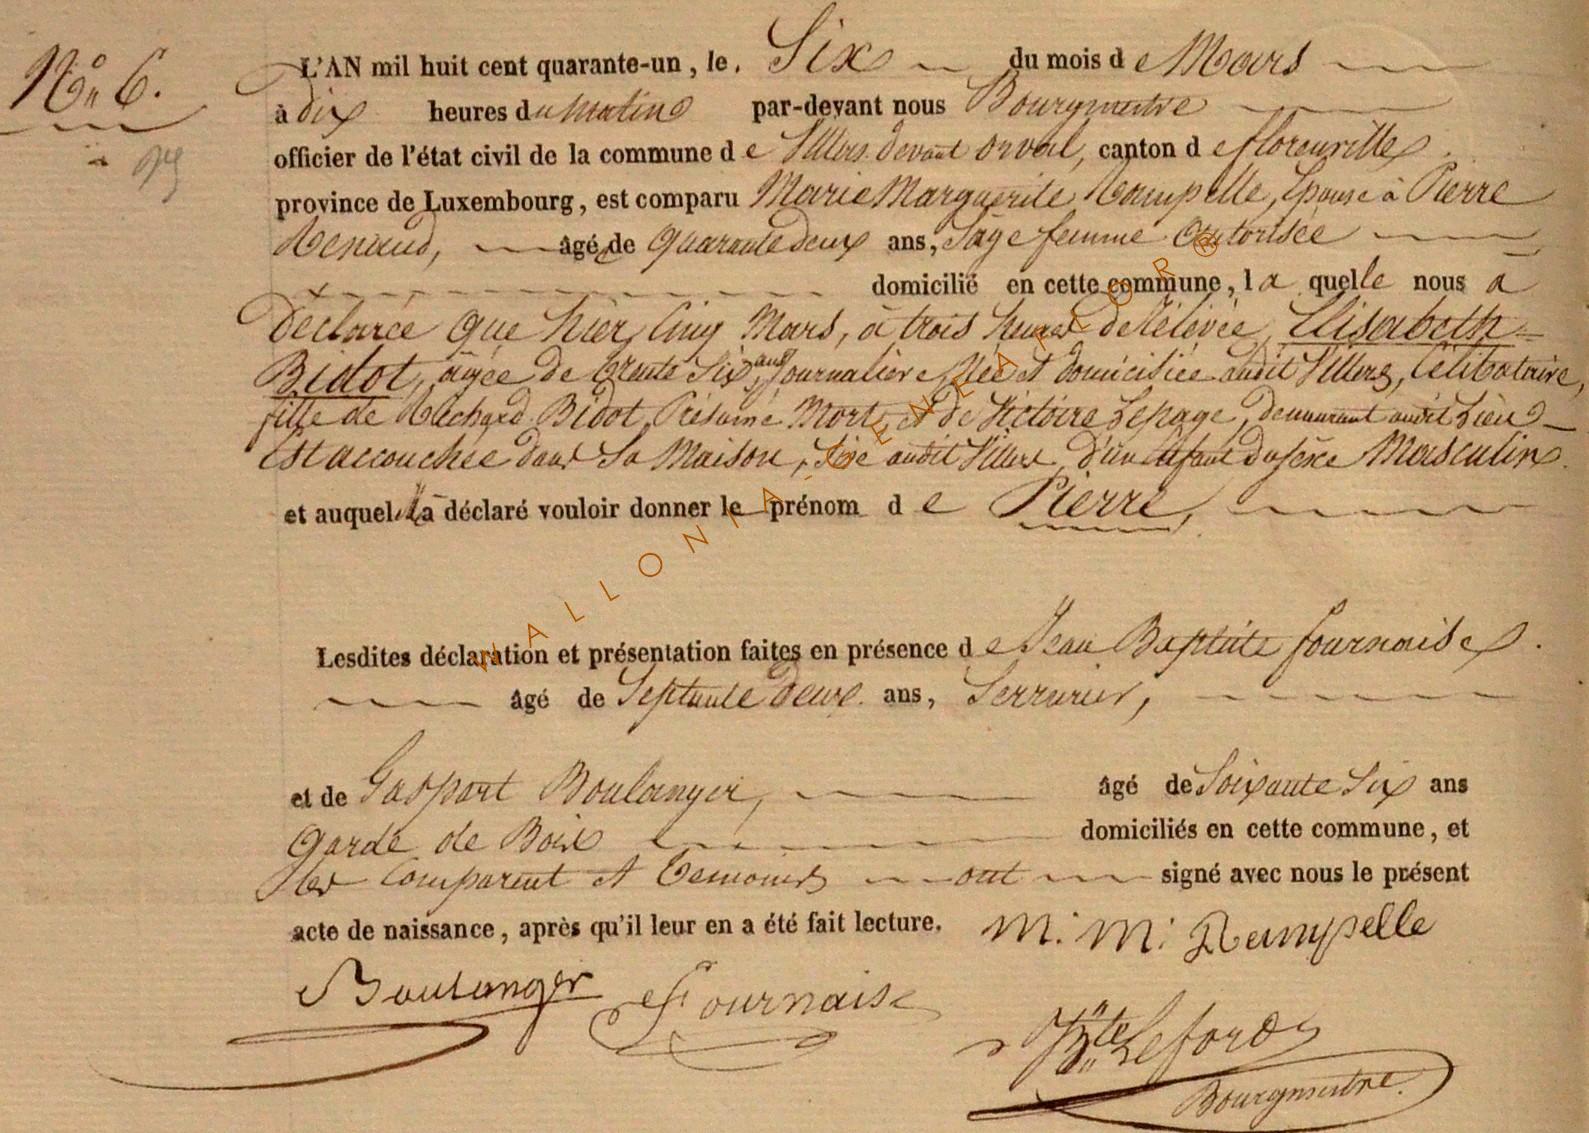 N° 6.
L'AN mil huit cent quarante-un, le. Six du mois de Mars
à dix heures du matin par-devant nous Bourgmestre
officier de l'état civil de la commune de Villers devant orval, canton de florenville.
province de Luxembourg, est comparu Marie Marguerite Rampelle, Epouse à Pierre
Renaud, âgée de quarante deux ans, Sage femme autorisée
domicilié en cette commune, la quelle nous à
Déclarée que hier Cinq Mars, à trois heures de relevée, Elisabeth
Bidot, agée de trente Six ans, Journalière, Née et domiciliée audit Villers, Célibataire,
fille de Richard Bidot, Présumé Mort, et de Victoire Lepage, demeurant audit Lieu
Est accouchée dans Sa Maison, Sise audit Villers, d'un Enfant du sexe Masculin.
et auquel a déclaré vouloir donner le prénom de Pierre,
Lesdites déclaration et présentation faites en présence de Jean Baptiste fournaise.
âgé de Septante Deux ans, Serrurier,
et de Gaspart Boulanger, âgé de Soixante Six ans
Garde de Bois domiciliés en cette commune, et
les Comparant et Temoins ont signé avec nous le présent
acte de naissance, après qu'il leur en a été fait lecture. M. M. Rampelle
Boulanger Fournaise
Bte Leford
Bourgmestre.
WALLONIA-GENEAFOR®